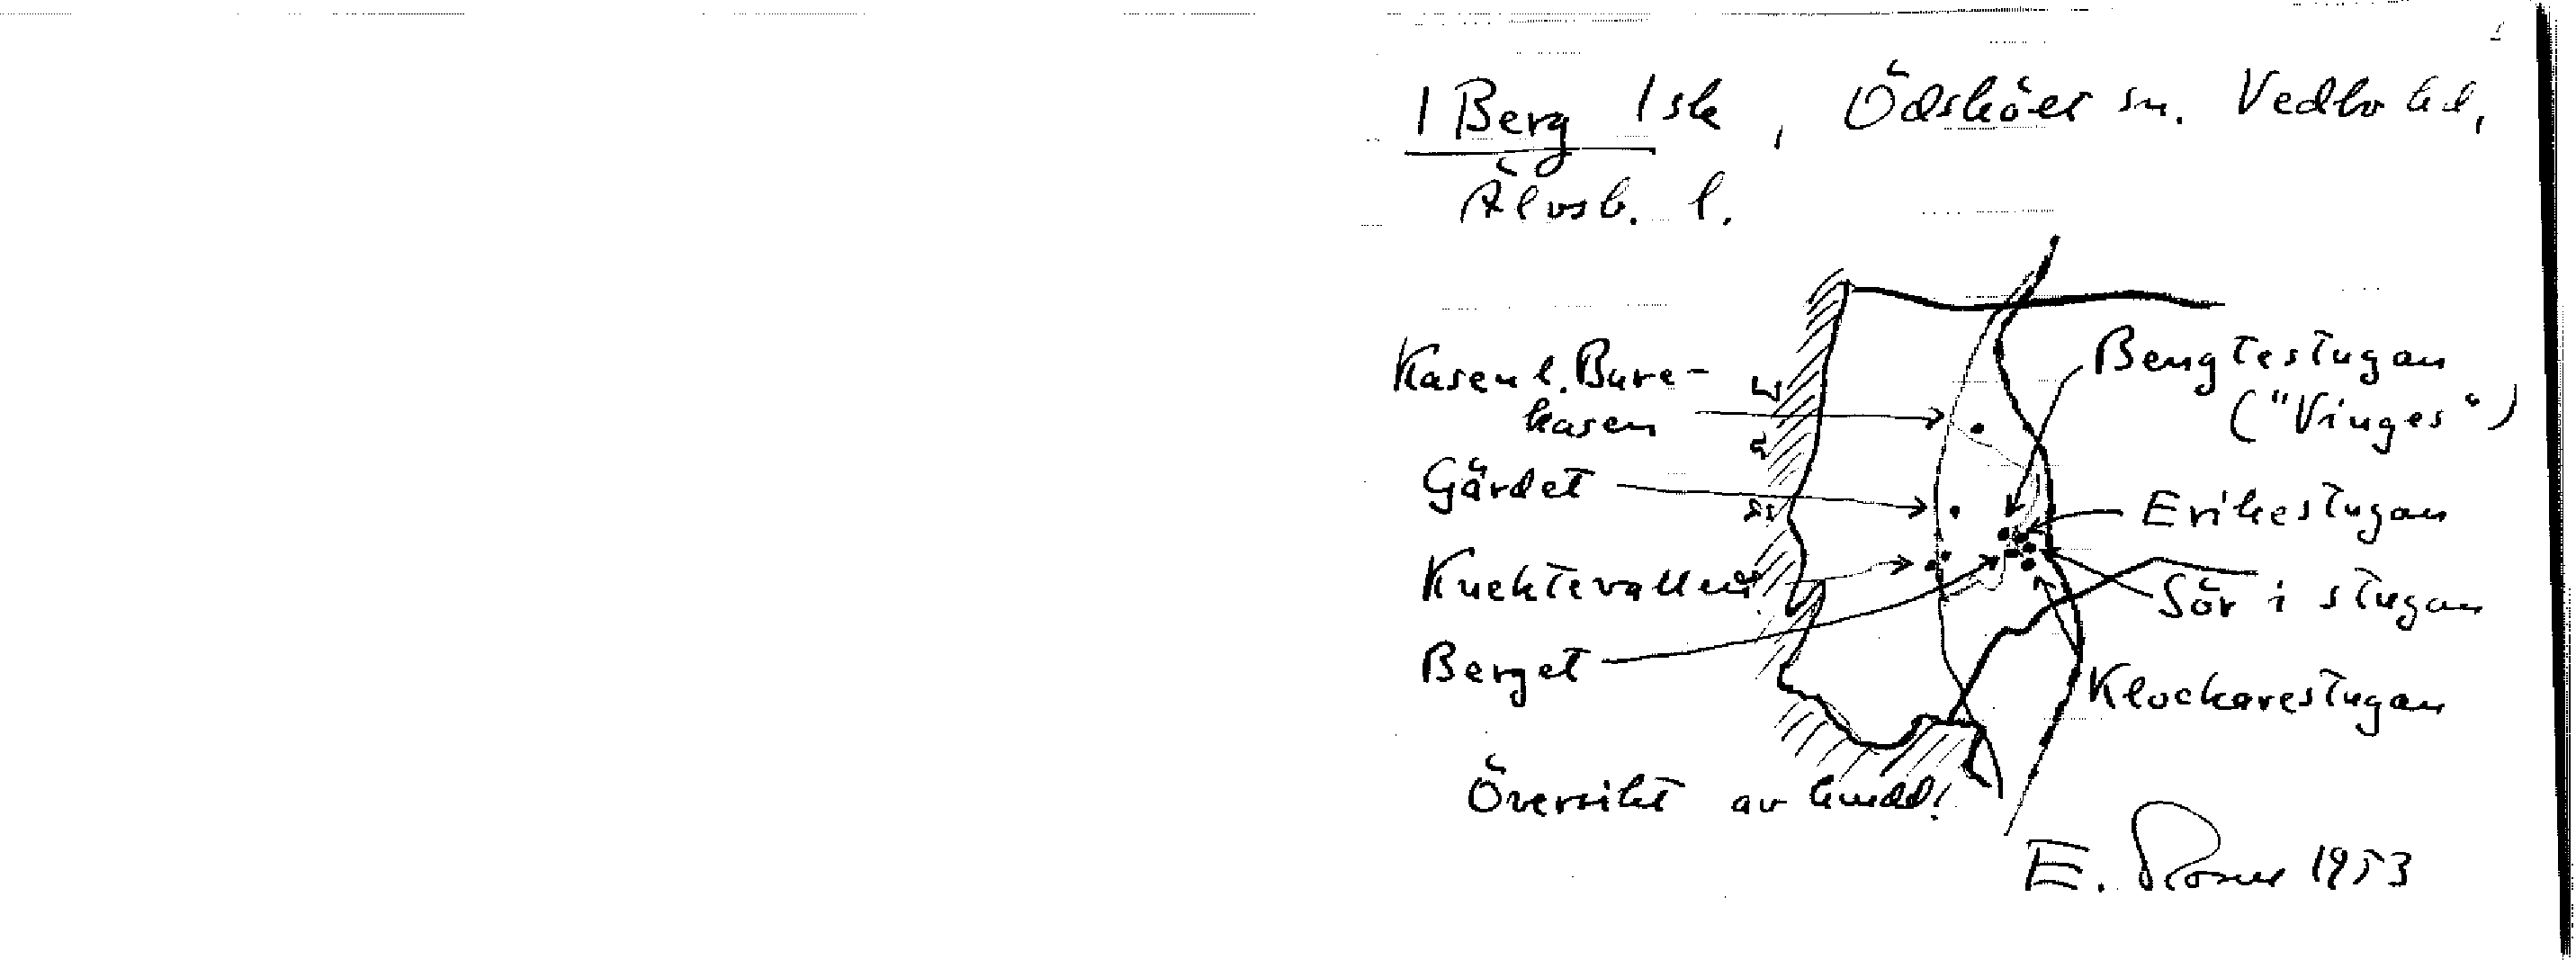 1 Berg 1 sk, Ödsköls sn. Vedbo hd,
Älvsb. l.
Kasen l. Bure-
kasen
Gärdet
Knektevallen
Berget
Bengtestugan
("Vinges")
Erikestugan
Sör i stugan
Klockarestugan
Översikt av
E. 1953